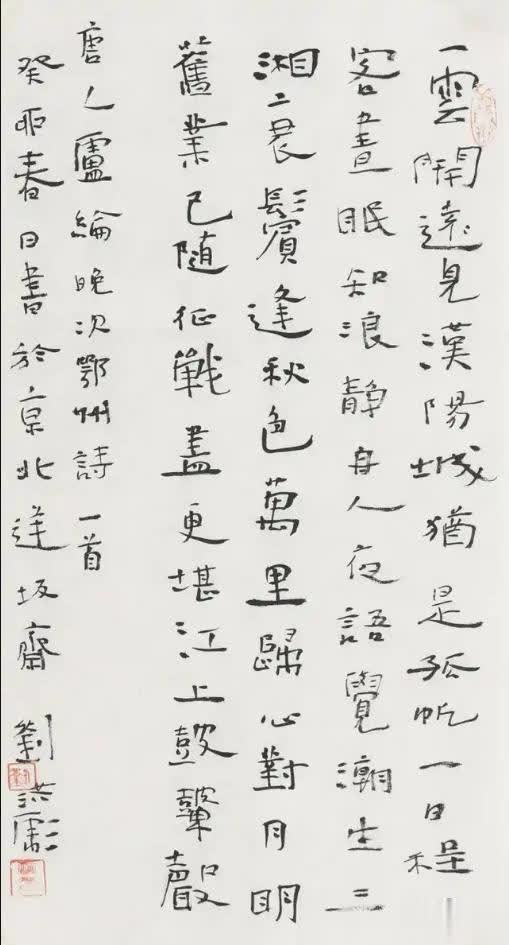 雲開遠見漢陽城猶是孤帆一日程
客晝眠知浪靜舟人夜語覺潮生三
湘二衰鬢逢秋色萬里歸心對月明
舊業已隨征戰盡更堪江上鼓鼙聲
唐人盧綸晚次鄂州詩一首
癸卯春日書於京北逆坂齋 劉洪彪